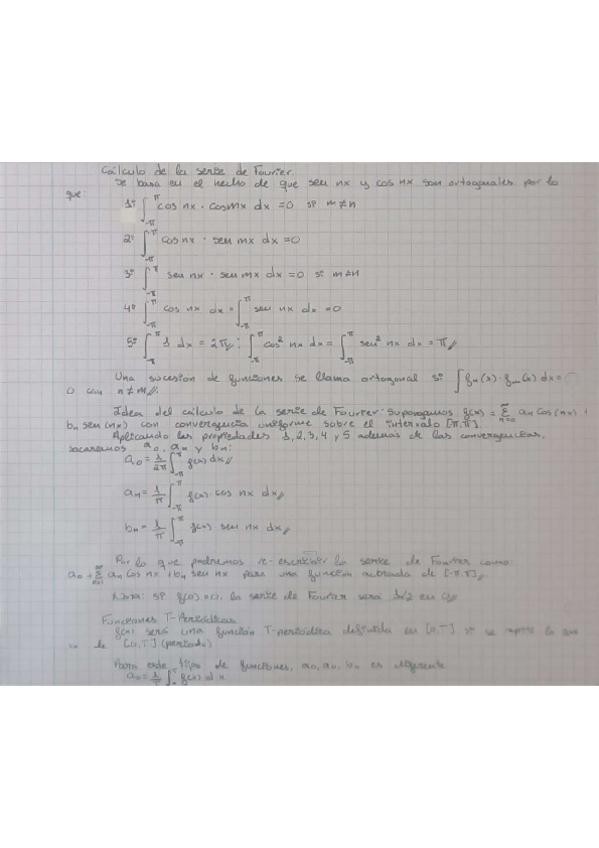 Cálculo de la serie de Fourier.
Se basa en el hecho de que sen nx y cos nx son ortogonales por lo
que:
1º ∫_{-π}^{π} cos nx · cos mx dx = 0 si m≠n
2º ∫_{-π}^{π} cos nx · sen mx dx = 0
3º ∫_{-π}^{π} sen nx · sen mx dx = 0 si m≠n
4º ∫_{-π}^{π} cos nx dx = ∫_{-π}^{π} sen nx dx = 0
5º ∫_{-π}^{π} 1 dx = 2π; ∫_{-π}^{π} cos² nx dx = ∫_{-π}^{π} sen² nx dx = π
Una sucesion de funciones se llama ortogonal si ∫ fn(x) · fm(x) dx =
0 con n≠m.
Idea del cálculo de la serie de Fourier: Supongamos f(x) = Σ_{n=0}^{∞} an cos(nx) +
bn sen(nx) con convergencia uniforme sobre el intervalo [π,π].
Aplicando las propiedades 1, 2, 3, 4 y 5 ademas de las convergencias,
sacaremos a0, an y bn:
a0 = 1/2π ∫_{-π}^{π} f(x) dx
an = 1/π ∫_{-π}^{π} f(x) · cos nx dx
bn = 1/π ∫_{-π}^{π} f(x) sen nx dx
Por lo que podremos re-escribir la serie de Fourier como:
a0 + Σ_{n=1}^{∞} an cos nx + bn sen nx para una función acotada de [-π,π]
Nota: la serie de Fourier será en
Funciones T-Periódicas
f(x) será una función T-periódica definida en [0,T] si se repite lo que
de [0,T] (periodo)
Para este tipo de funciones, a0, an, bn es
a0 = 1/T ∫ f(x) dx